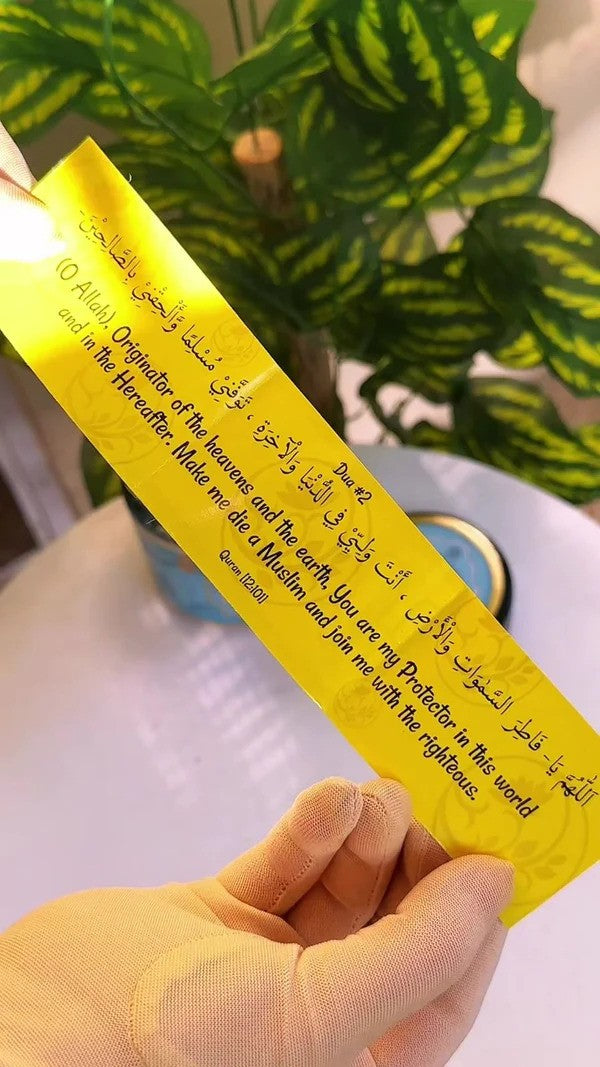 Dua #2
اَللّٰهُمَّ يَا- فَاطِرَ السَّمٰوَاتِ وَالْأَرْضِ ، أَنْتَ وَلِيّٖ فِي الدُّنْيَا وَالْآخِرَةِ ، تَوَفَّنِيْ مُسْلِمًا وَّأَلْحِقْنِيْ بِالصَّالِحِيْنَ-
(O Allah), Originator of the heavens and the earth, You are my Protector in this world
and in the Hereafter. Make me die a Muslim and join me with the righteous.
Quran [12:101]